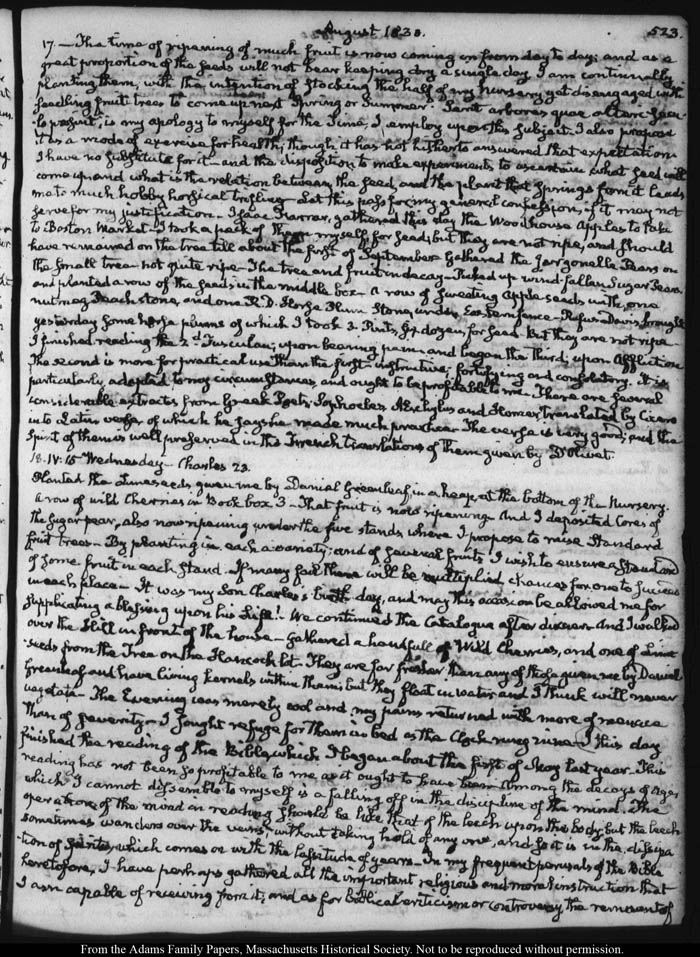 August 1830.
523.
17.— The time of ripening of much fruit is now coming on from day to day; and as a
great proportion of the seeds will not bear keeping dry a single day I am continually
planting them, with the intention of stocking the half of my nursery yet disengaged with
seedling fruit trees to come up next Spring or Summer. Serit arbores quae altero
is my apology to myself for the time, I employ upon this subject. I also propose
it as a mode of exercise for health, though it has not hitherto answered that expectation
I have no substitute for it— and the disposition to make experiments to ascertain what seed will
come up and what is the relation between the seed, and the plant that springs from it leads
me to much hobby horsical trifling. Let this pass for my general confession, if it may not
serve for my justification— Isaac Farrar, gathered this day the Woodhouse Apples to take
to Boston Market— I took a peck of them myself for seed; but they are not ripe, and should
have remained on the tree till about the first of September. Gathered the Jargonelle Pears on
the small tree— not quite ripe— The tree and fruit in decay— Picked up wind-fallen Sugar Pears
and planted a row of the seeds in the middle box— A row of Sweeting Apple seeds with, one
nutmeg Peach stone, and one R. D. Horse Plum Stone, under Eastern fence— Rufus Davis brought
yesterday some horse plums of which I took 3 Pints, for seed. But they are not ripe—
I finished reading the 2d. Tusculan; upon bearing pain and began the third; upon Affliction
The second is more for practical use than the first— instructive, fortifying and consolatory. It is
particularly adapted to my circumstances, and ought to be profitable to me. There are several
considerable extracts from Greek Poets, Sophocles, Aeschylus and Homer, translated by Cicero
into Latin verse, of which he says he made much practice. The verse is very good; and the
spirit of them is well preserved in the French translations of them given by D'Olivet.
18. IV:15 Wednesday— Charles 23.
Planted the Lime seeds given me by Daniel Greenleaf, in a heap, at the bottom of the Nursery.
a row of wild Cherries in Bock box 3— That fruit is now ripening. And I deposited Cores of
the Sugar pear, also now ripening under the five stands where I propose to raise Standard
fruit trees— By planting in each a variety; and of several fruits I wish to ensure a standard
of some fruit in each stand. If many fail there will be multiplied chances for one to succeed
in each place— It was my Son Charles's birth day, and may this occasion be allowed me for
supplicating a blessing upon his Life! We continued the Catalogue after dinner. And I walked
over the Hill in front of the house— Gathered a handfull of Wild Cherries, and one of Lime
seeds from the Tree on the Hancock lot. They are far fresher than any of those given me by Daniel
Greenleaf and have living kernels within them; but they float in water and I think will never
vegetate— The Evening was merely cool and my pains returned with more of menace
than of severity— I sought refuge for them in bed as the Clock rung nine— I this day
finished the reading of the Bible, which I began about the first of May last year. This
reading has not been so profitable to me as it ought to have been. Among the decays of age,
which I cannot dissemble to myself is a falling off in the discipline of the mind. The
operation of the mind in reading should be like that of the leech upon the body; but the leech
sometimes wanders over the veins, without taking hold of any one, and so it is in the dissipa
tion of which comes on with the lassitude of years. In my frequent perusals of the Bible
heretofore, I have perhaps gathered all the important religious and moral instruction that
I am capable of receiving from it, and as for Biblical criticism or controversy the remnant of
From the Adams Family Papers, Massachusetts Historical Society. Not to be reproduced without permission.